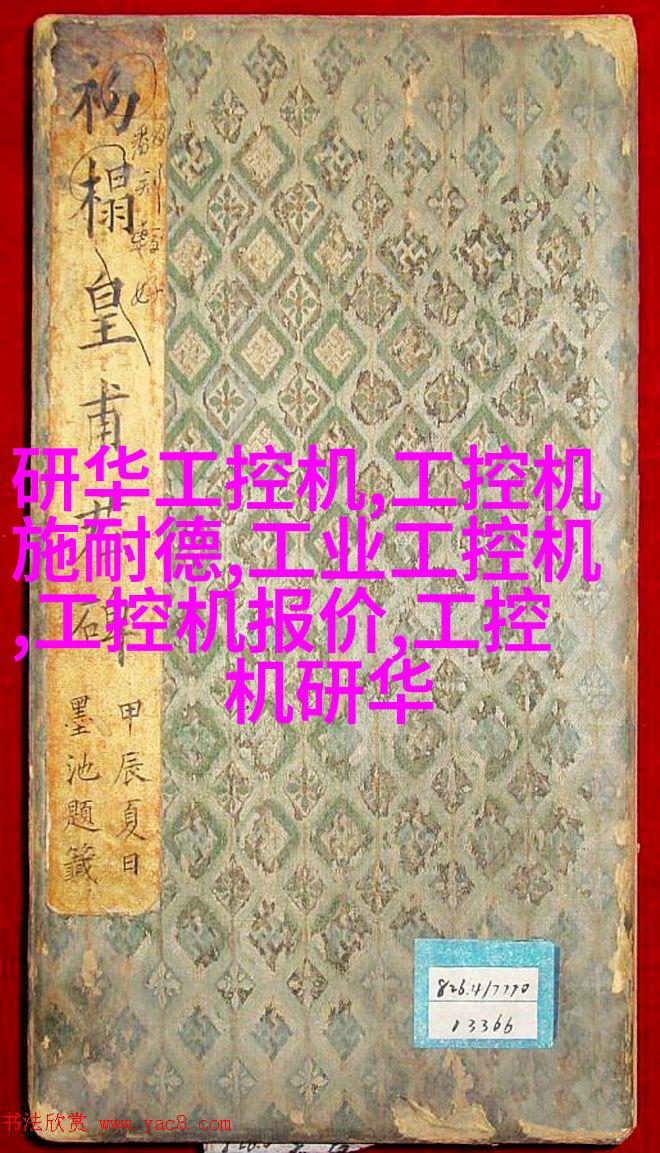 初榻皇甫君碑
甲辰夏日
墨池題籤
研华工控机,工控机
施耐德,工业工控机
,工控机报价,工控
机研华
826.4/7770
13366
书法欣赏 www.yac8.com